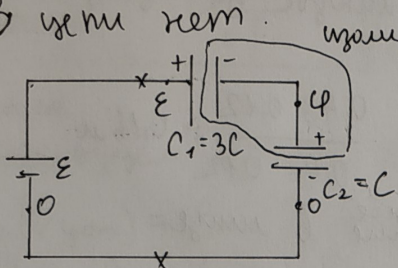 цепи нет. изол
+ -
ε φ
C₁=3C +
ε - C₂=C
0 0